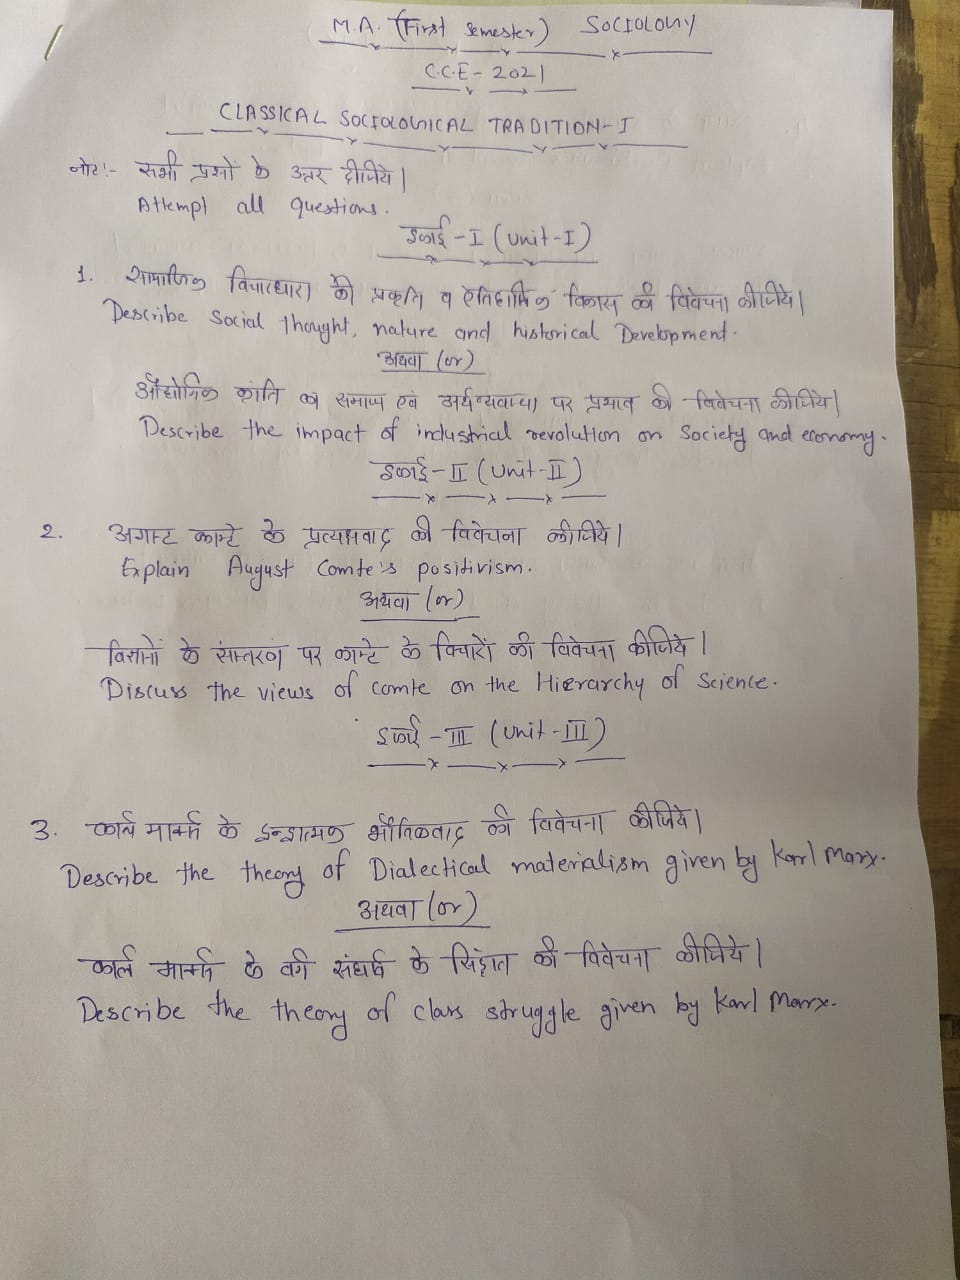 M.A. (First Semester) SOCIOLOGY
C.C.E - 2021
CLASSICAL SOCIOLOGICAL TRADITION-I
नोट:- सभी प्रश्नों के उत्तर दीजिये।
Attempt all questions.
इकाई - I (Unit-I)
1. सामाजिक विचारधारा की प्रकृति व ऐतिहासिक विकास की विवेचना कीजिये।
Describe Social thought, nature and historical Development.
अथवा (or)
औद्योगिक क्रांति का समाज एवं अर्थव्यवस्था पर प्रभाव की विवेचना कीजिये।
Describe the impact of industrial revolution on Society and economy.
इकाई - II (Unit-II)
2. अगस्ट काम्टे के प्रत्यक्षवाद की विवेचना कीजिये।
Explain August Comte's positivism.
अथवा (or)
विज्ञानों के संस्तरण पर काम्टे के विचारों की विवेचना कीजिये।
Discuss the views of comte on the Hierarchy of Science.
इकाई - III (Unit-III)
3. कार्ल मार्क्स के द्वन्द्वात्मक भौतिकवाद की विवेचना कीजिये।
Describe the theory of Dialectical materialism given by Karl Marx.
अथवा (or)
कार्ल मार्क्स के वर्ग संघर्ष के सिद्धांत की विवेचना कीजिये।
Describe the theory of class struggle given by Karl Marx.